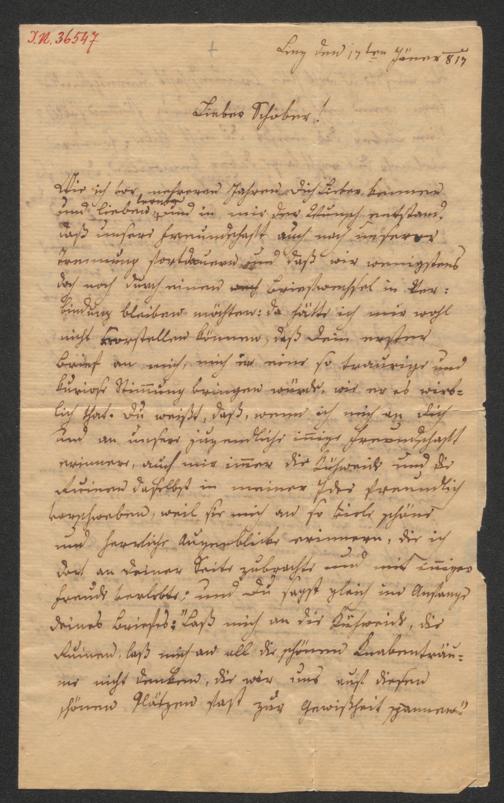 I.N. 36547
Linz den 17ten Jäner 1817
Lieber Schober!
Wie ich vor mehreren Jahren Dich Lieber kennen
und lieben lernte, und in mir der Wunsch entstand,
daß unsere Freundschaft auch nach unserer
Trennung fortdauern und daß wir wenigstens
doch noch durch einen Briefwechsel in Ver-
bindung bleiben möchten: da hätte ich mir wohl
nicht vorstellen können, daß Dein erster
Brief an mich, mich in eine so traurige und
kuriose Stimmung bringen würde, wie er es wirk-
lich that. Du weißt, daß, wenn ich mich an Dich
und an unsere jugendliche innige Freundschaft
erinnere, auch mir immer die Kühweide und die
Ruinen daselbst in meiner Idee freundlich
vorschweben, weil sie mich an so viele schöne
und herrliche Augenblicke erinnern, die ich
dort an Deiner Seite zubrachte und mit inniger
Freude verlebte; und Du sagst gleich im Anfange
Deines Briefes: "Laß mich an die Kühweide, die
Ruinen, laß mich an all die schönen Knabenträu-
me nicht denken, die wir uns auf diesen
schönen Plätzen fast zur Gewißheit spannen."